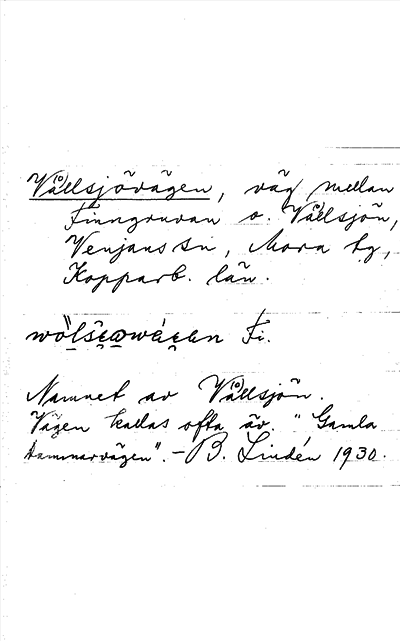 Vå(o)llsjövägen, väg mellan
Finngruvan o. Vå(o)llsjön,
Venjans sn, Mora tg,
Kopparb. län.
Fi.
Namnet av Vå(o)llsjön.
Vägen kallas ofta äv. "Gamla
hammarvägen". – B. Lindén 1930.